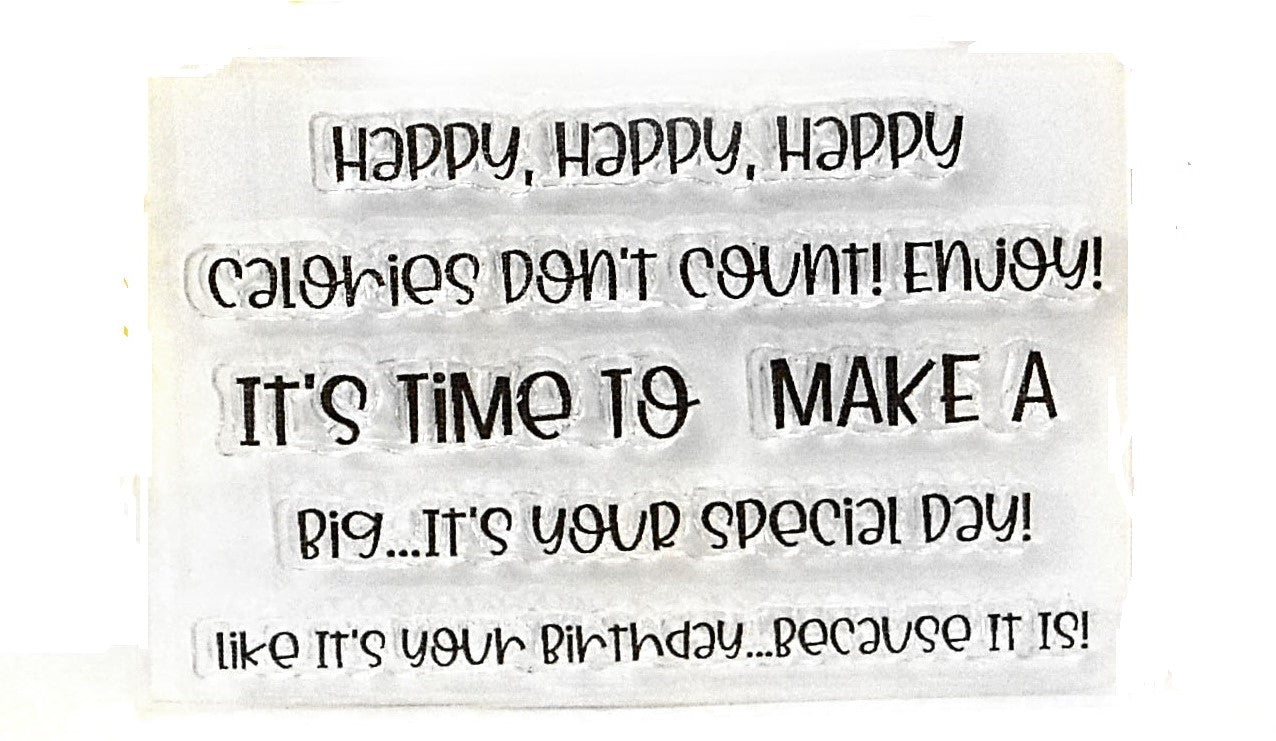 Happy, Happy, Happy
Calories Don't Count! Enjoy!
It's TiMe TO MAKE A
Big...It's YOUR Special Day!
like It's your Birthday...Because It Is!